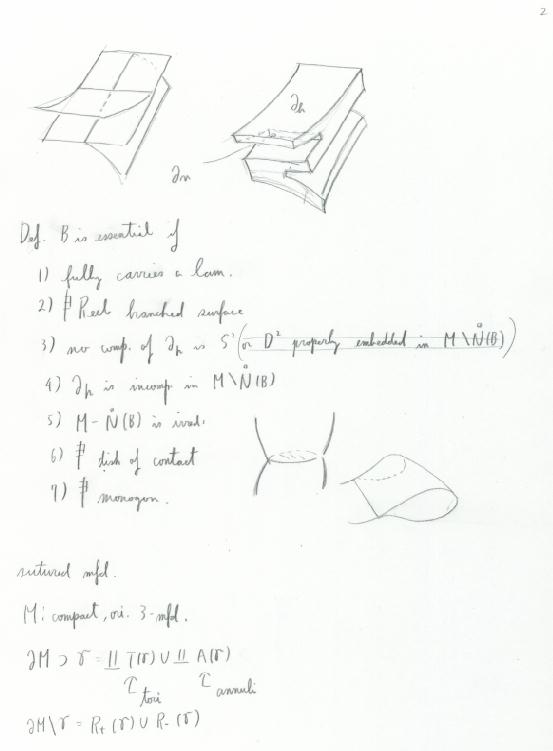 2
∂h
∂v
Def. B is essential if
1) fully carries a lam.
2) ∄ Reeb branched surface
3) no comp. of ∂h is S² (or D² properly embedded in M \ N̊(B))
4) ∂h is incomp in M \ N̊(B)
5) M - N̊(B) is irred.
6) ∄ disk of contact
7) ∄ monogon.
sutured mfd.
M: compact, ori. 3-mfd.
∂M ⊃ γ = ⨿ T(γ) ∪ ⨿ A(γ)
tori annuli
∂M \ γ = R+(γ) ∪ R-(γ)